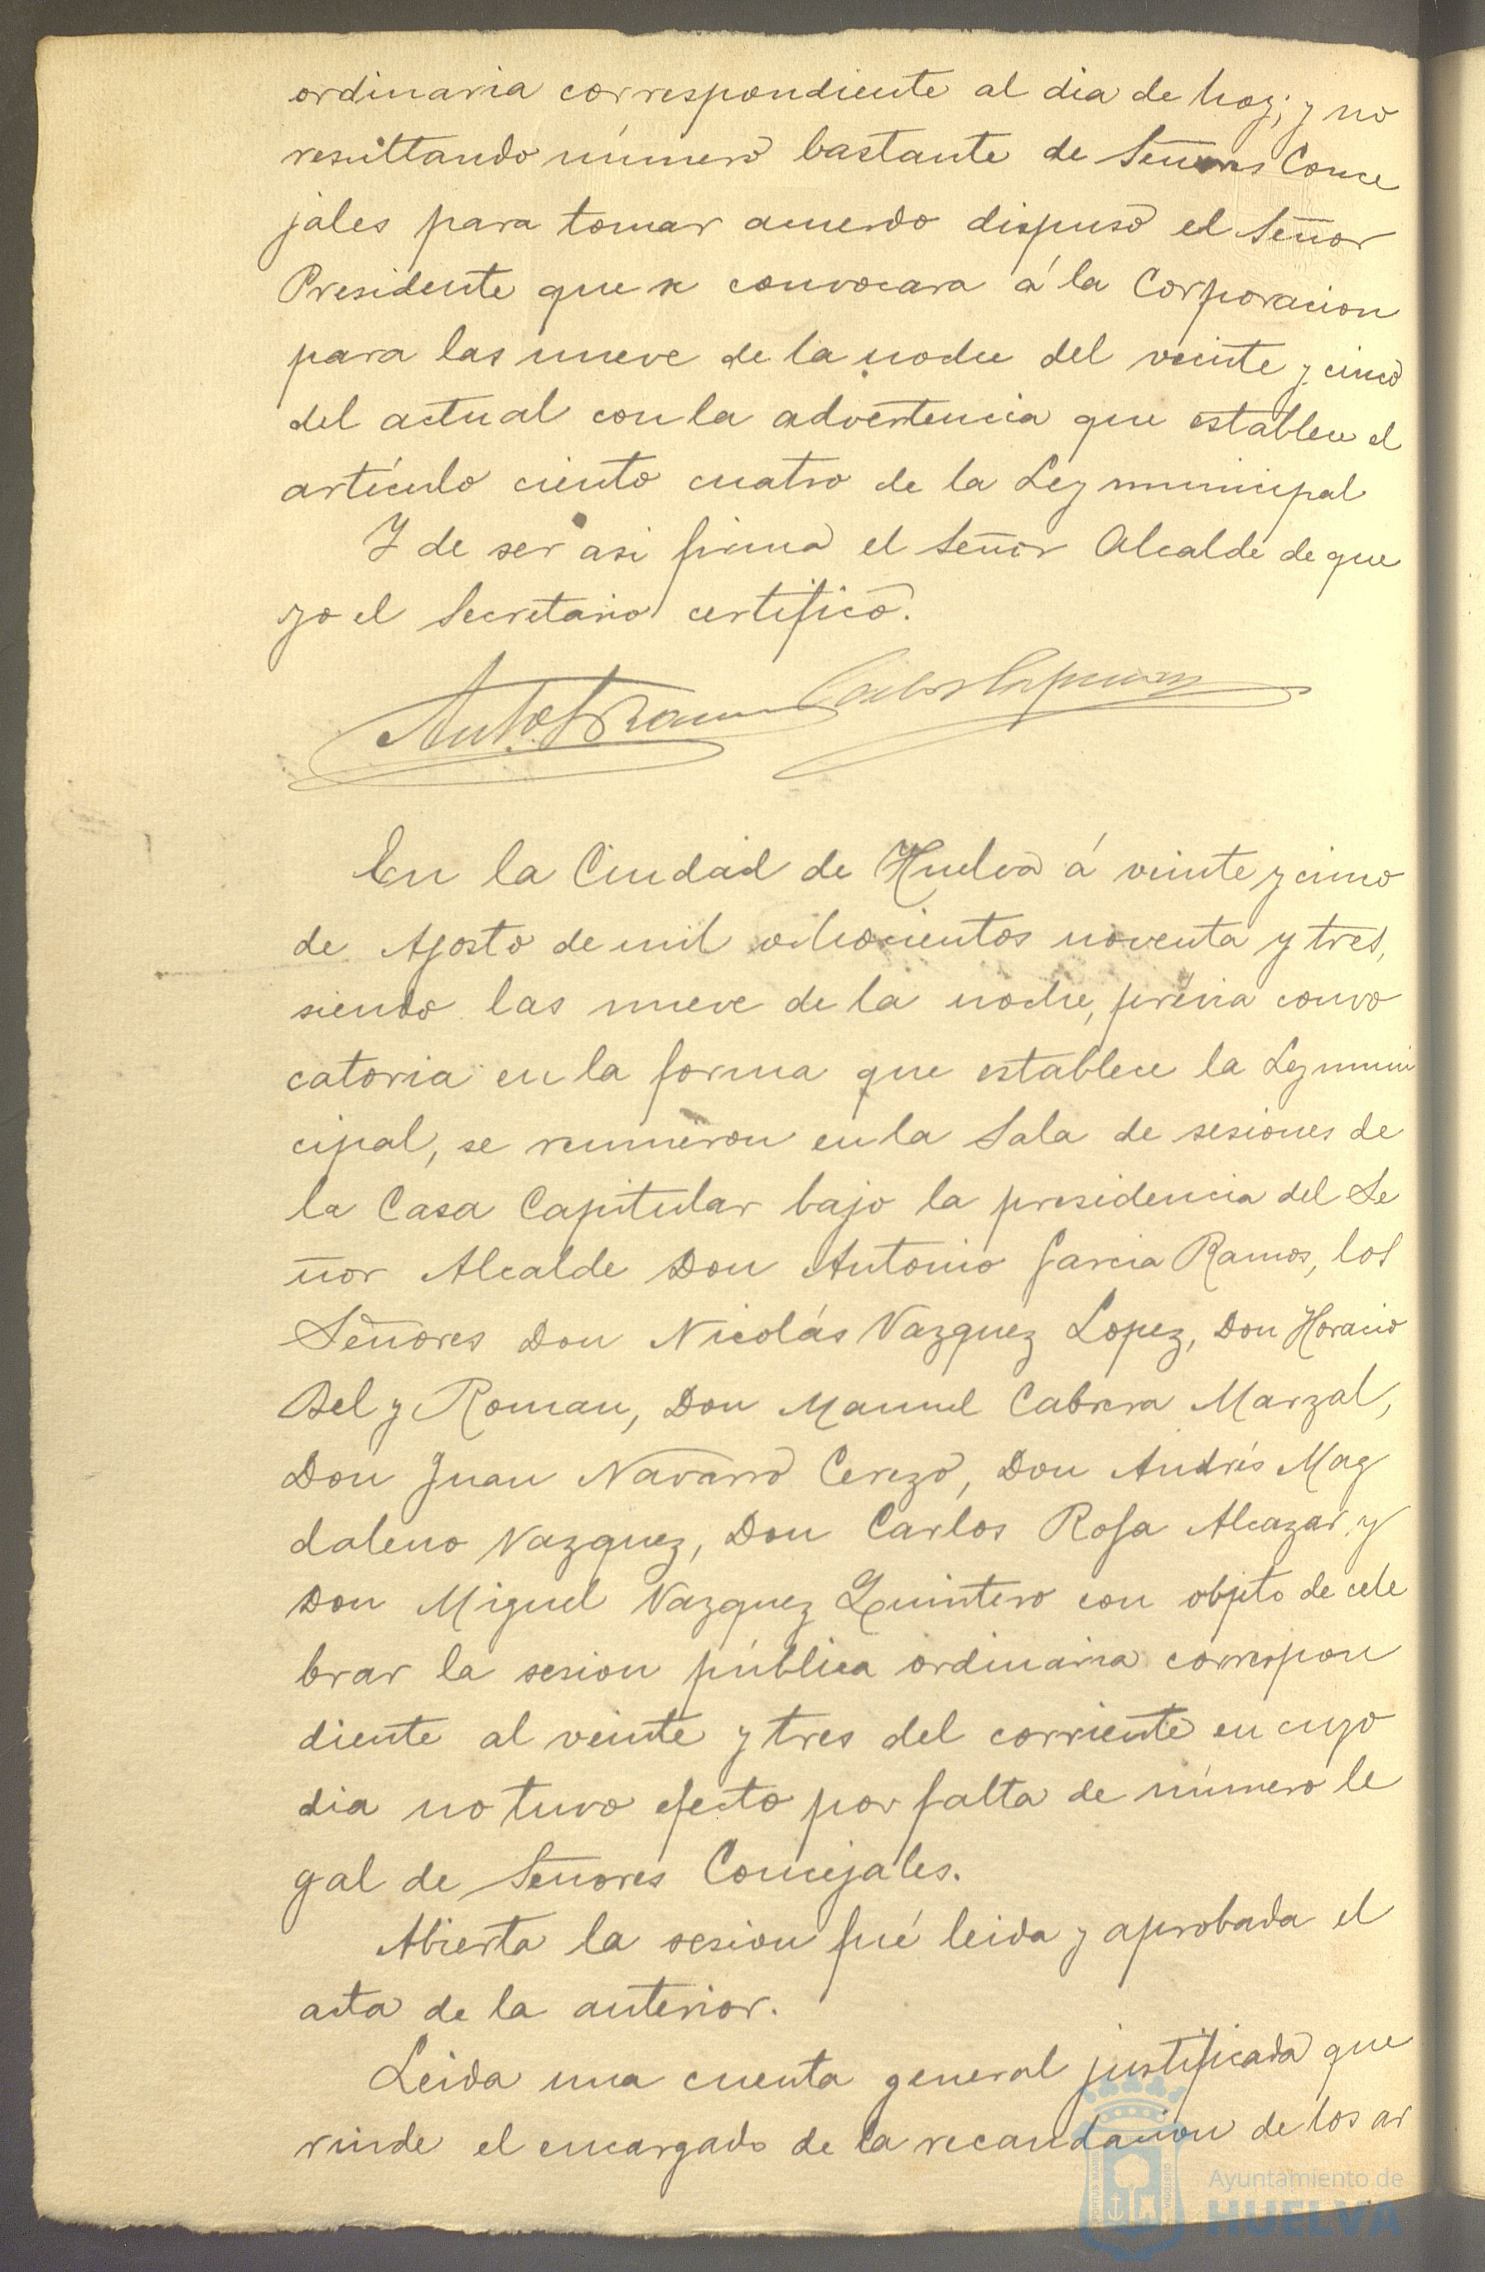 ordinaria correspondiente al dia de hoy; y no
resultando número bastante de Señores Conce
jales para tomar acuerdo dispuso el Señor
Presidente que se convocara á la Corporacion
para las nueve de la noche del veinte y cinco
del actual con la advertencia que establece el
artículo ciento cuatro de la Ley municipal
Y de ser asi firma el Señor Alcalde de que
yo el Secretario certifico.
Anto. G Ramos
En la Ciudad de Huelva á veinte y cinco
de Agosto de mil ochocientos noventa y tres,
siendo las nueve de la noche, prévia convo
catoria en la forma que establece la Ley muni
cipal, se reunieron en la Sala de sesiones de
la Casa Capitular bajo la presidencia del Se
ñor Alcalde Don Antonio Garcia Ramos, los
Señores Don Nicolás Vazquez Lopez, Don Horacio
Bel y Roman, Don Manuel Cabrera Marzal,
Don Juan Navarro Cerezo, Don Andrés Mag
daleno Vazquez, Don Carlos Rofa Alcazar y
Don Miguel Vazquez Quintero con objeto de cele
brar la sesion pública ordinaria correspon
diente al veinte y tres del corriente en cuyo
dia no tuvo efecto por falta de número le
gal de Señores Concejales.
Abierta la sesion fué leida y aprobada el
acta de la anterior.
Leida una cuenta general justificada que
rinde el encargado de la recaudacion de los ar
Ayuntamiento de
HUELVA